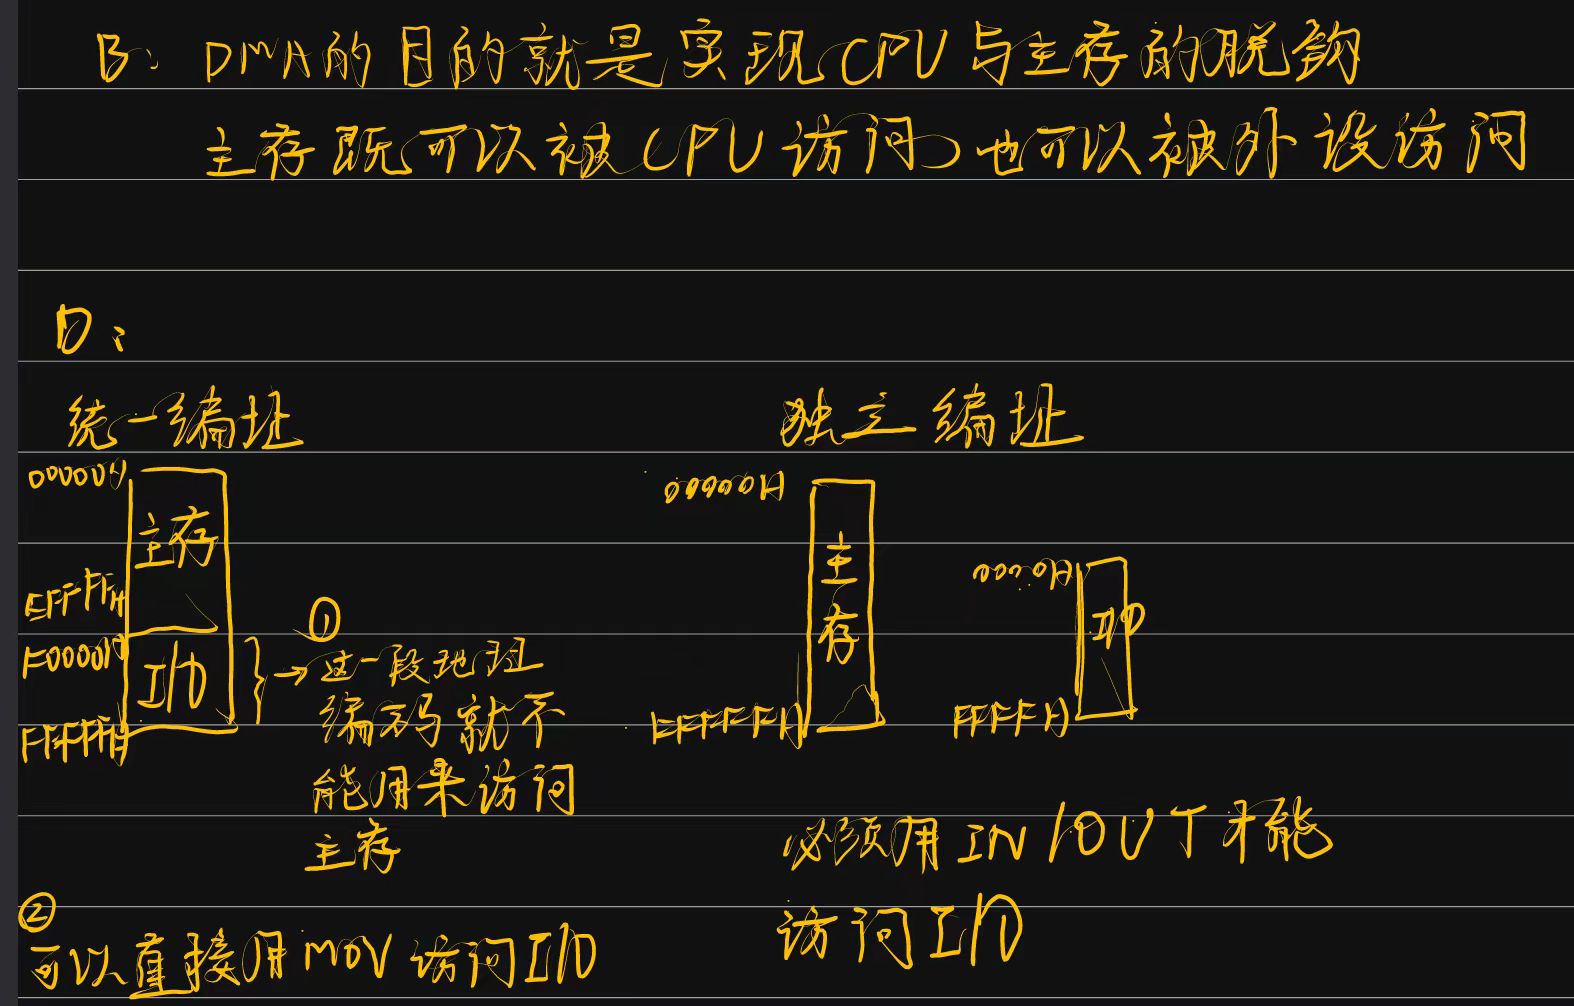 B: DMA的目的就是实现CPU与主存的脱钩
主存既可以被CPU访问,也可以被外设访问
D:
统一编址
00000H
主存
EFFFFH
F0000H
I/O
FFFFFH
①
→这一段地址
编码就不
能用来访问
主存
②
可以直接用MOV访问I/O
独立编址
00000H
主
存
FFFFFH
0000H
I/O
FFFFH
必须用IN/OUT才能
访问I/O